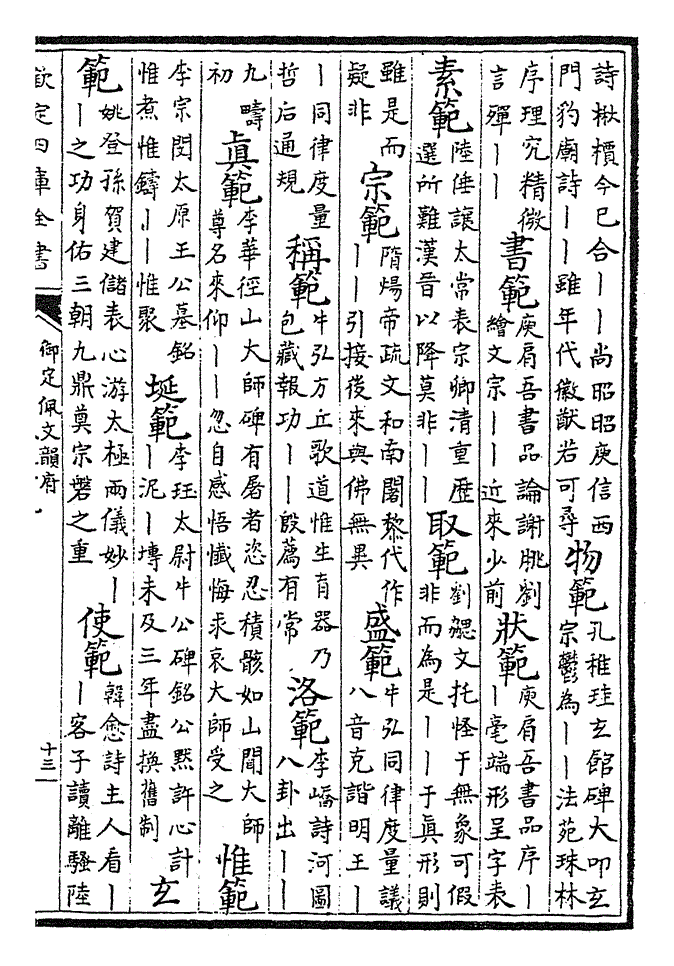 詩楸檟今已合||尚昭昭庾信西
門豹廟詩||雖年代徽猷若可尋
物範
孔稚珪玄館碑大叩玄
宗鬱為||法苑珠林
序理究精微
言殫||
書範
庾肩吾書品論謝朓劉
繪文宗||近來少前
狀範
庾肩吾書品序|
|毫端形呈字表
素範
陸倕讓太常表宗卿清重歷
選所難漢晉以降莫非||
取範
劉勰文托怪于無象可假
非而為是||于眞形則
雖是而
疑非
宗範
隋煬帝疏文和南闍黎代作
||引接後來與佛無異
盛範
牛弘同律度量議
八音克諧明王|
|同律度量
哲后通規
稱範
牛弘方丘歌道惟生育器乃
包藏報功||殷薦有常
洛範
李嶠詩河圖
八卦出||
九疇
初
眞範
李華徑山大師碑有屠者恣忍積骸如山聞大師
尊名來仰||忽自感悟懺悔求哀大師受之
惟範
李宗閔太原王公墓銘
惟煮惟鑄||惟聚
埏範
李珏太尉牛公碑銘公默許心計
|泥|塼未及三年盡換舊制
玄
範
姚登孫賀建儲表心游太極兩儀妙|
|之功身佑三朝九鼎奠宗之重
使範
韓愈詩主人看|
|客子讀離騷陸
欽定四庫全書
御定佩文韻府
十三